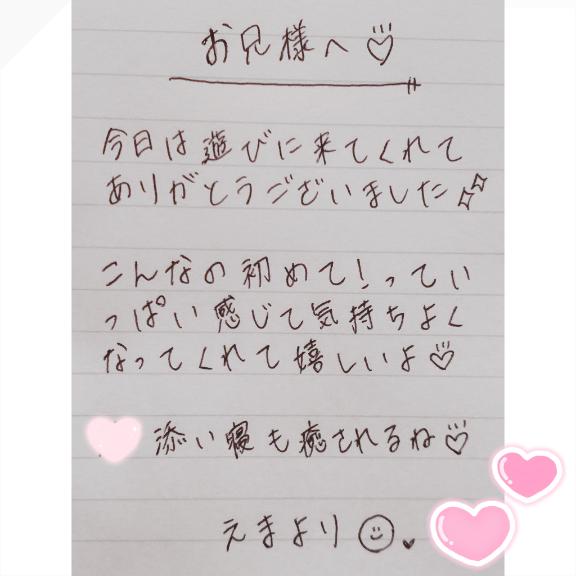 お兄様へ♡
今日は遊びに来てくれて
ありがとうございました
こんなの初めて!ってい
っぱい感じて気持ちよく
なってくれて嬉しいよ♡
添い寝も癒されるね♡
えまより